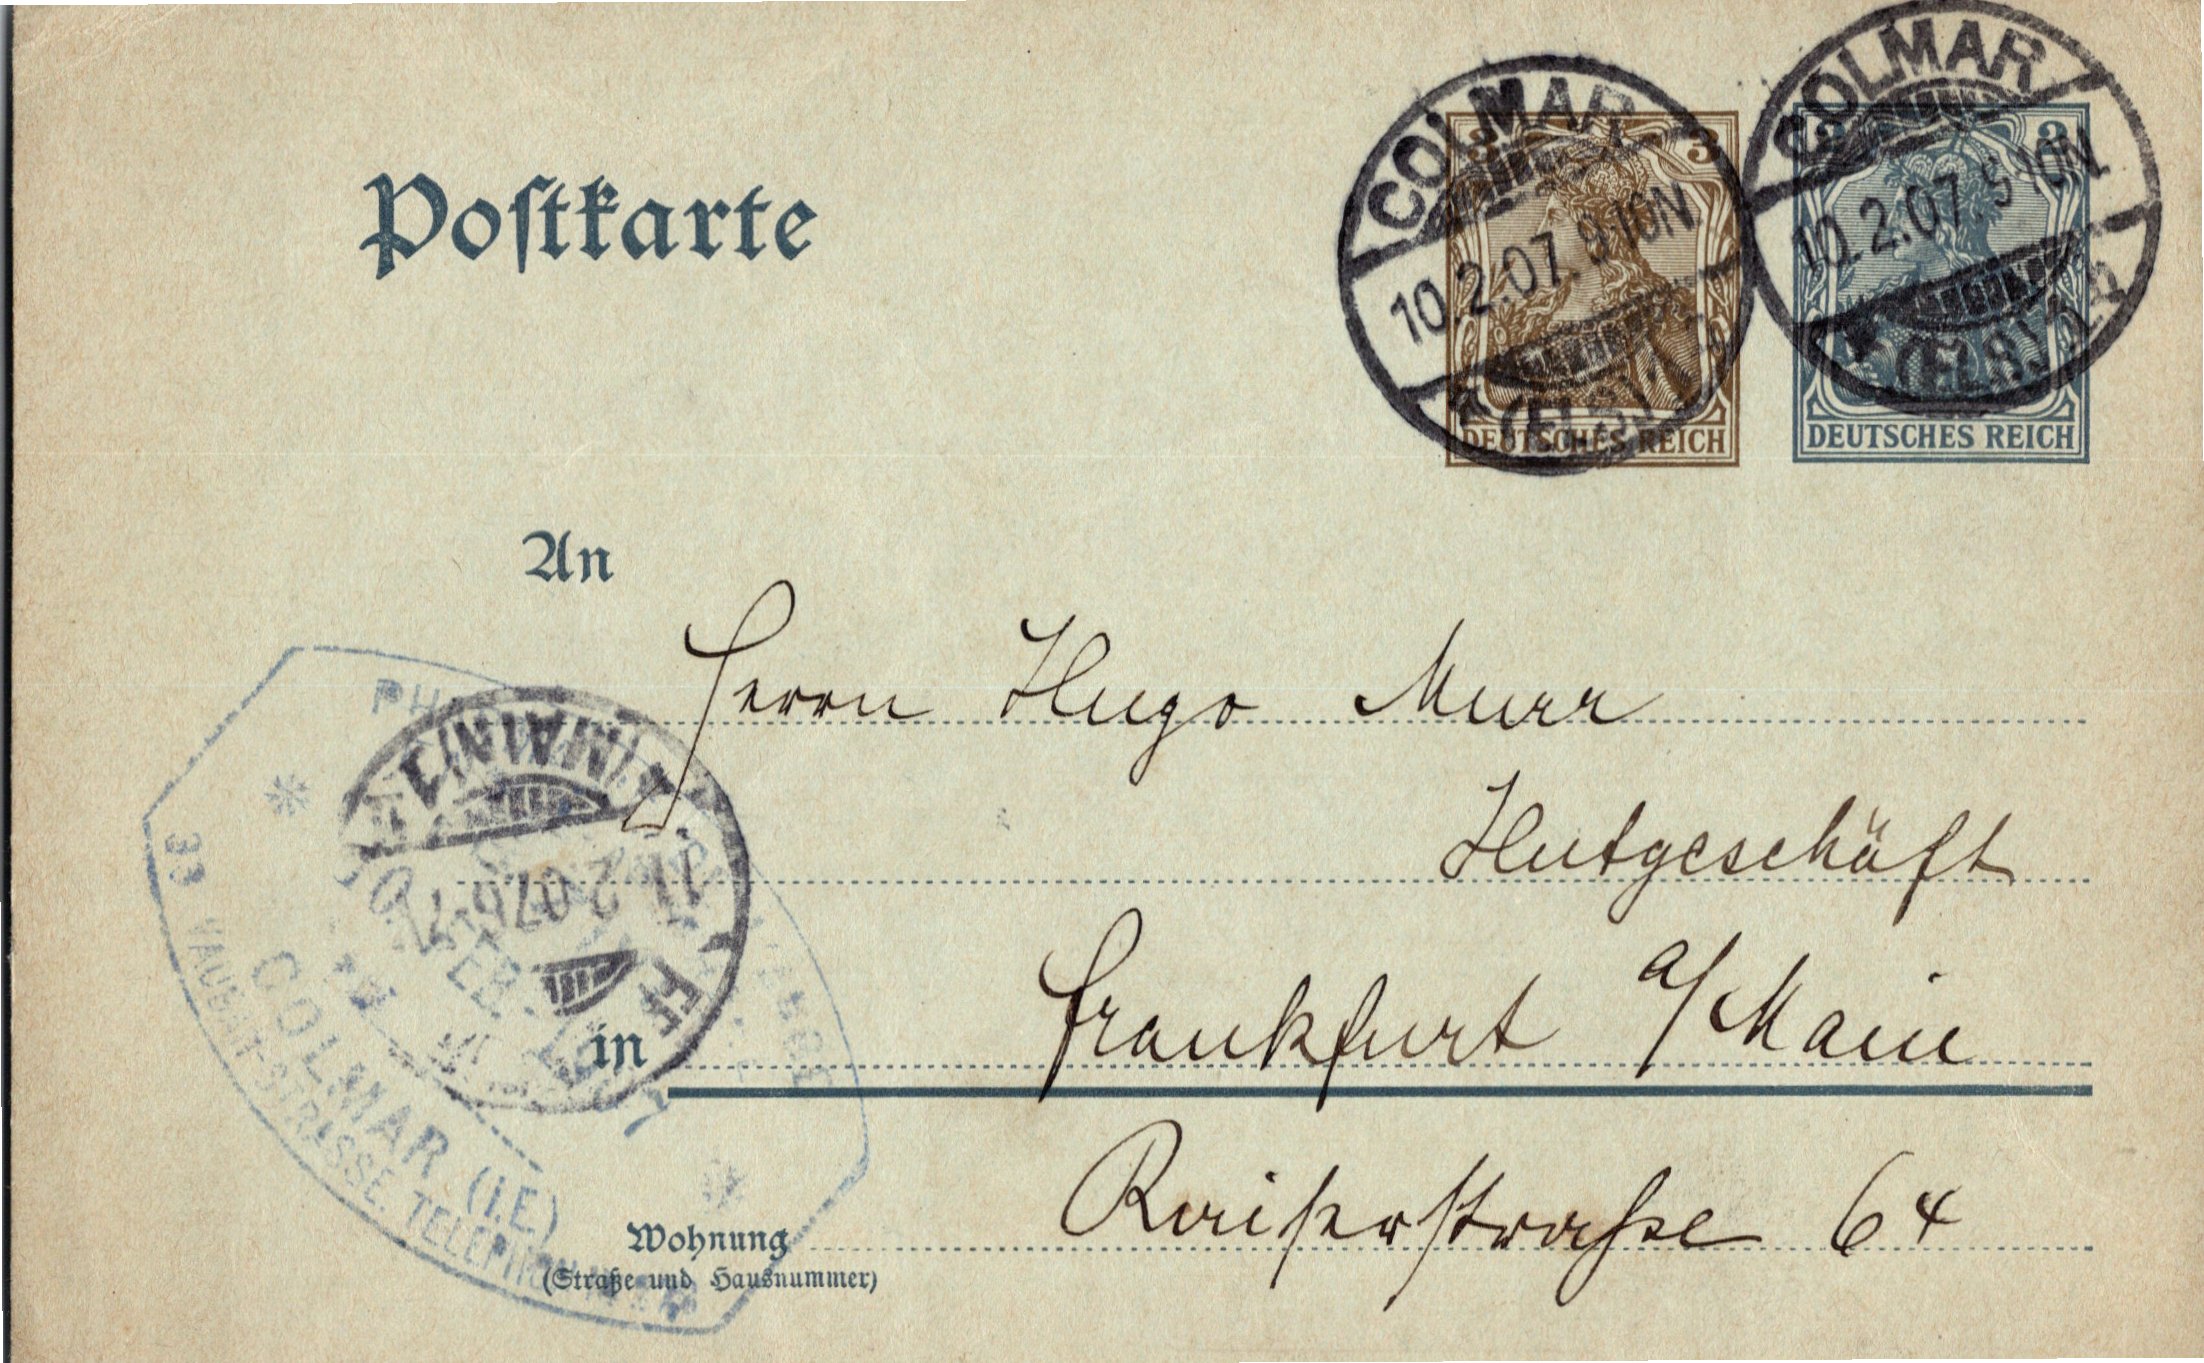 COLMAR
10.2.07.9-10N
* (ELS.)
3 3
DEUTSCHES REICH
COLMAR
10.2.07.9-10N
* (ELS.)
3 3
DEUTSCHES REICH
Postkarte
An
Herrn Hugo Murr
Hutgeschäft
in Frankfurt a/Main
Wohnung Kaiserstraße 64
(Straße und Hausnummer)
(MAIN)
11.2.07
33 VAUBAN-STRASSE. TELEPHON
COLMAR (I.E.)